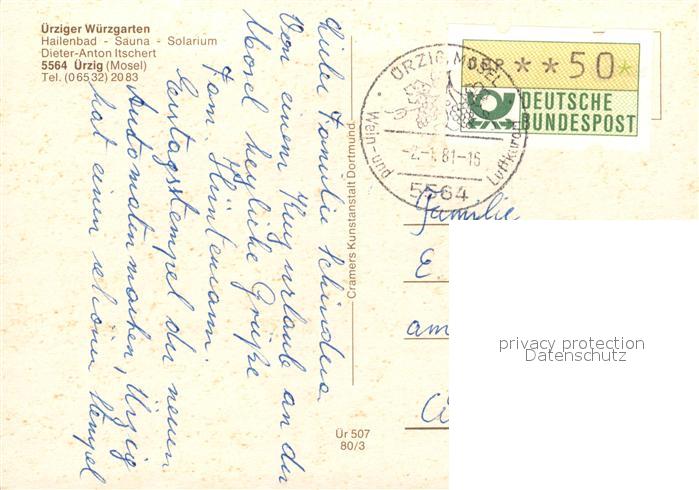 Ürziger Würzgarten
Hallenbad - Sauna - Solarium
Dieter-Anton Itschert
5564 Ürzig (Mosel)
Tel. (0 65 32) 20 83
Liebe Familie Schindera
Von einem Kurzurlaub an der
Mosel herzliche Grüße
Fam. Hüntemann.
Erstagsstempel der neuen
Automatenmarken, Ürzig
hat einen schönen Stempel
Cramers Kunstanstalt Dortmund
Ür 507
80/3
ÜRZIG, MOSEL
-2.-1.81-16
5564
Wein- und Luftkurort
DBP ★ ★ 50 ★
DEUTSCHE
BUNDESPOST
Familie
E.
am
privacy protection
Datenschutz